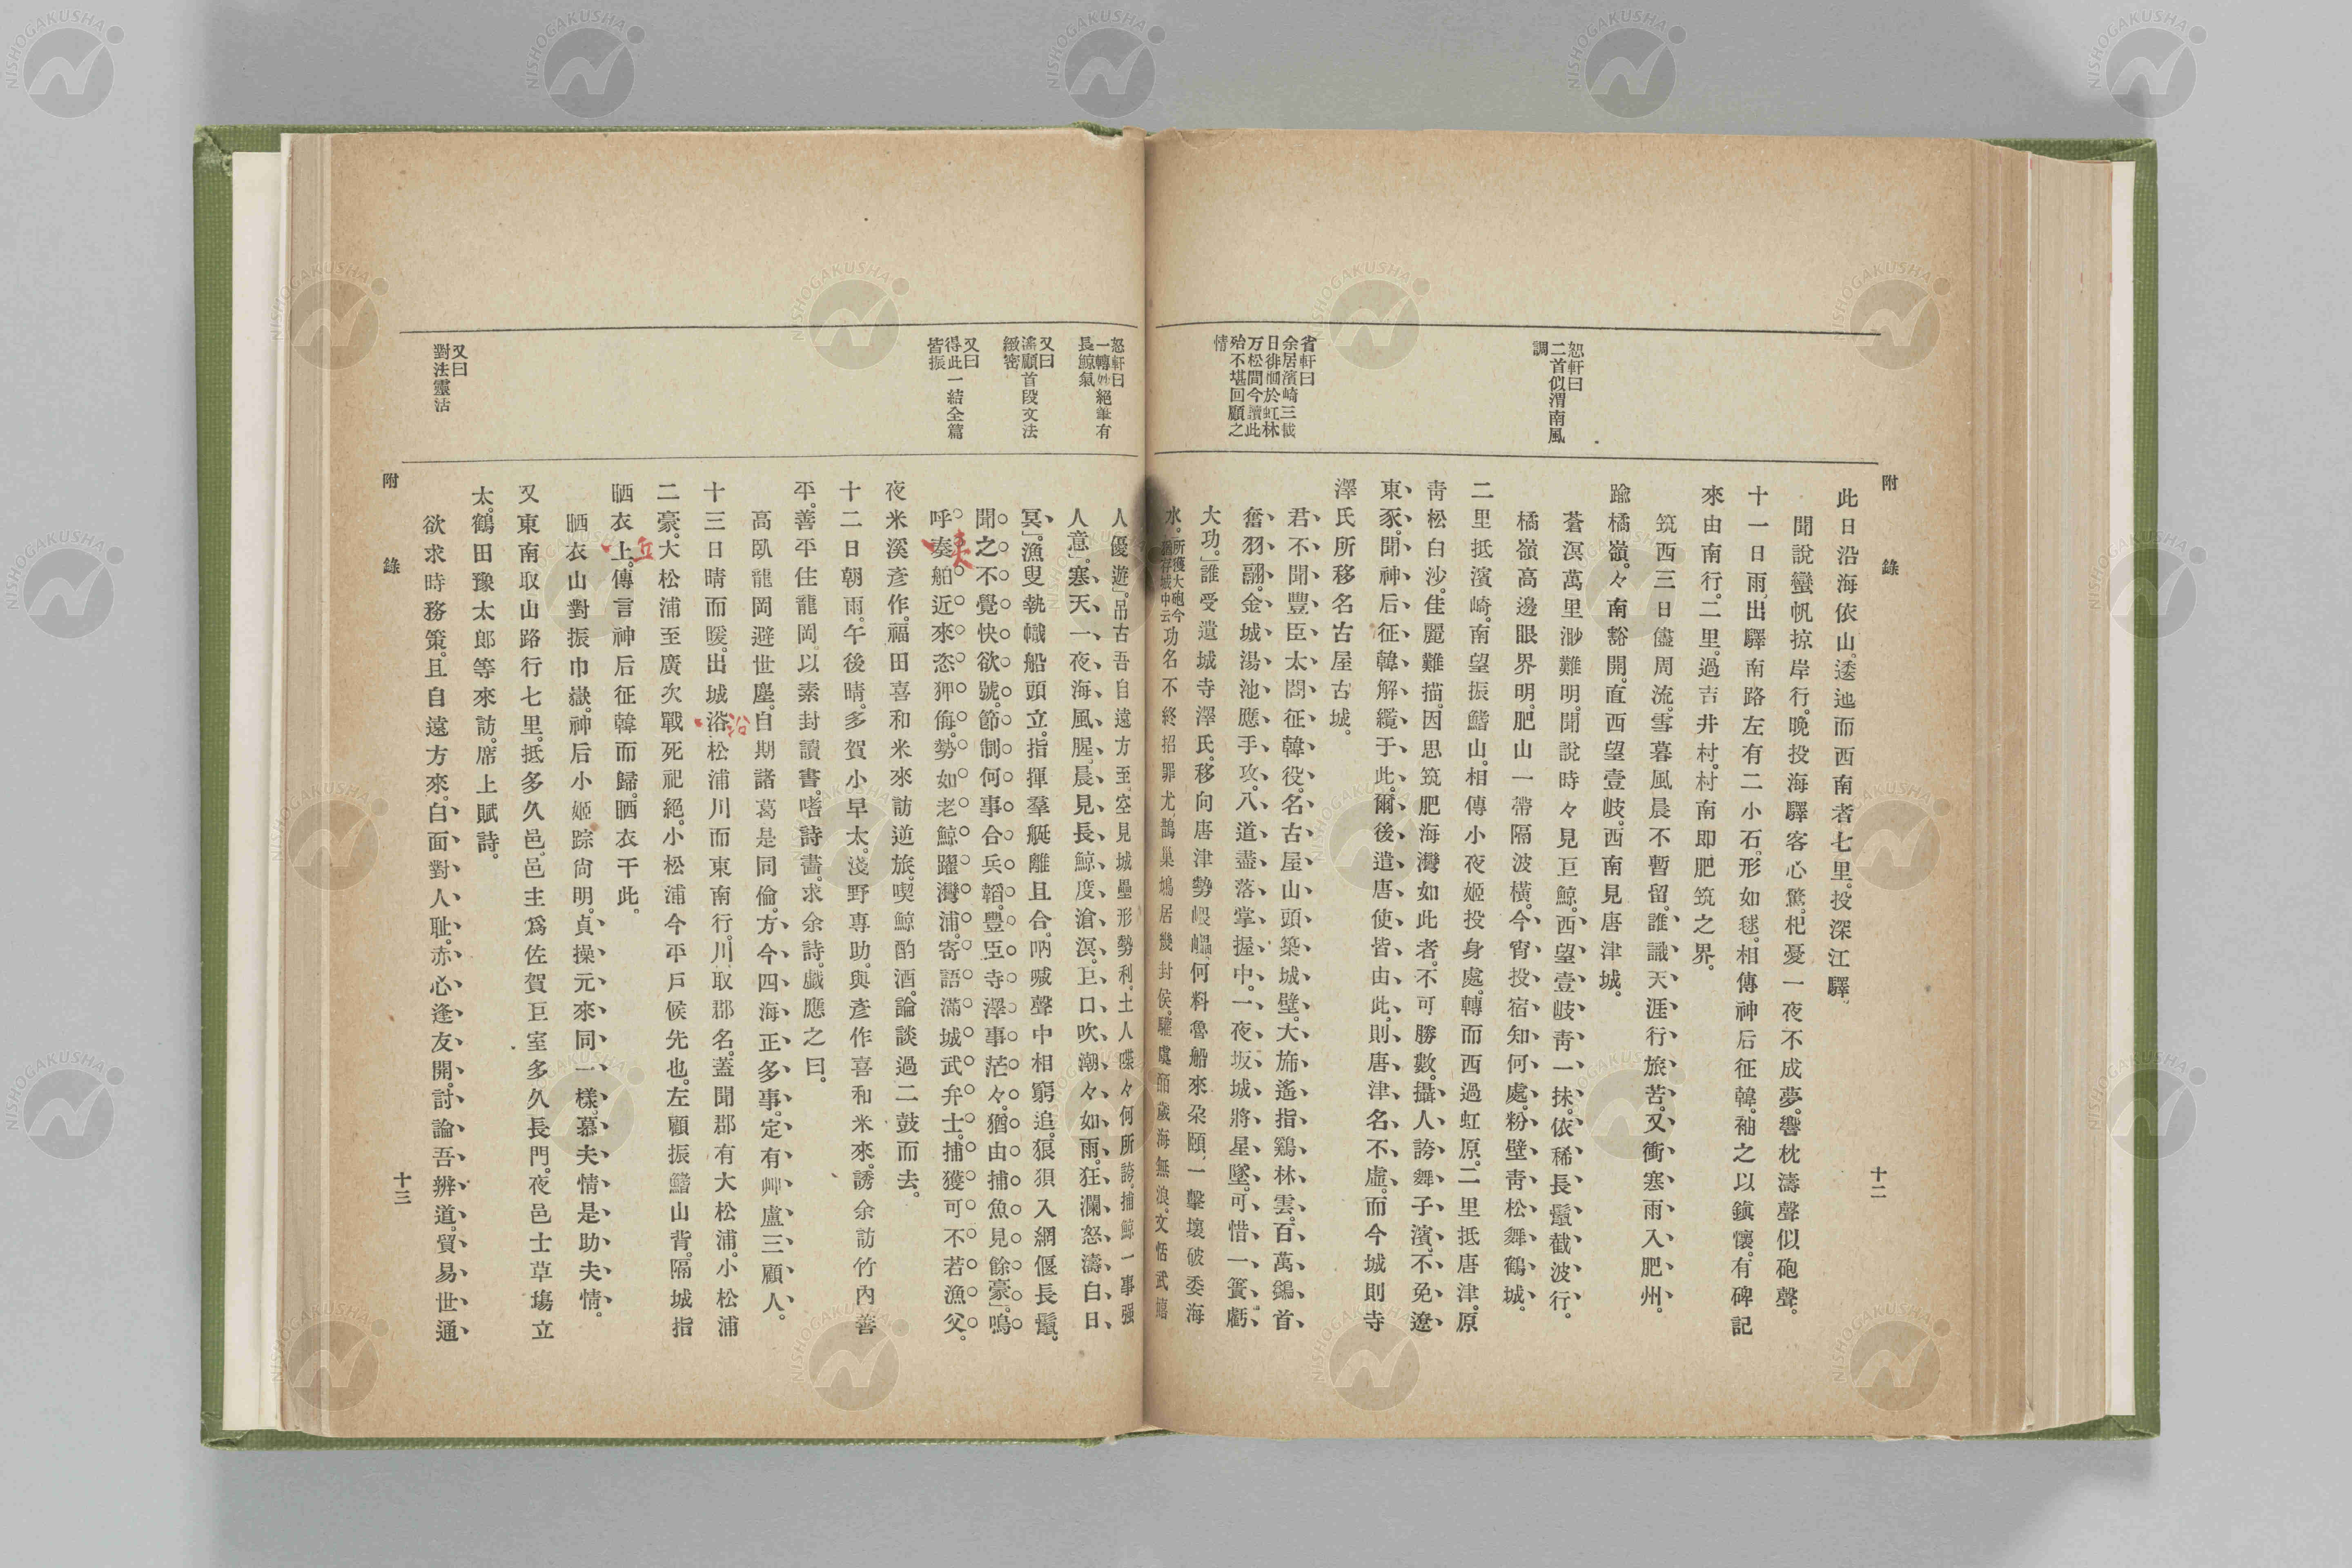 附錄
十二
恕軒曰
二首似渭南風
調
省軒曰
余居濱崎三載
日徘徊於虹林
万松間今讀此
殆不堪回顧之
情
此日沿海依山。逶迆而西南者七里。投深江驛。
聞說蠻帆掠岸行。晚投海驛客心驚。杞憂一夜不成夢。響枕濤聲似砲聲。
十一日雨、出驛南路左有二小石。形如毬。相傳神后征韓。袖之以鎮懷。有碑記
來由南行。二里。過吉井村。村南即肥筑之界。
筑西三日儘周流。雪暮風晨不暫留。誰識天涯行旅苦。又衝寒雨入肥州。
踰橘嶺。々南豁開。直西望壹岐。西南見唐津城。
蒼溟萬里渺難明。聞說時々見巨鯨。西望壹岐靑一抹。依稀長鬣截波行。
橘嶺高邊眼界明。肥山一帶隔波橫。今宵投宿知何處。粉壁靑松舞鶴城。
二里抵濱崎。南望振鰭山。相傳小夜姬投身處。轉而西過虹原。二里抵唐津。原
靑松白沙。佳麗難描。因思筑肥海灣如此者。不可勝數。攝人誇舞子濱。不免遼
東豕。聞神后征韓。解纜于此。爾後遣唐使皆由此。則唐津名不虛。而今城則寺
澤氏所移名古屋古城。
君不聞豐臣太閤征韓役。名古屋山頭築城壁。大旆遙指鷄林雲。百萬鷁首
奮羽翮。金城湯池應手攻。八道盡落掌握中。一夜坂城將星墜。可惜一簣虧
大功。」誰受遣城寺澤氏。移向唐津勢嵔㠥。何料魯船來朶頤。一擊壞破委海
水。所獲大砲今猶存城中云功名不終招罪尤。鵲巢鳩居幾封侯。驩虞弼歲海無浪。文恬武嬉
附錄
十三
恕軒曰
一轉妙絕筆有
長鯨氣
又曰
遙顧首段文法
緻密
又曰
得此一結全篇
皆振
又曰
對法靈活
人優遊」。吊古吾自遠方至。空見城壘形勢利。土人喋々何所誇。捕鯨一事强
人意」。寒天一夜海風腥。晨見長鯨度滄溟。巨口吹潮々如雨。狂瀾怒濤白日
冥」。漁叟執幟船頭立。指揮羣艇離且合。吶喊聲中相窮追。狼狽入網偃長鬣。
聞之不覺快欲號。節制何事合兵韜。豐臣寺澤事茫々。猶由捕魚見餘豪」。嗚
呼奏舶近來恣狎侮。勢如老鯨躍灣浦。寄語滿城武弁士。捕獲可不若漁父。
夷
夜米溪彥作。福田喜和米來訪逆旅。喫鯨酌酒。論談過二鼓而去。
十二日朝雨。午後晴。多賀小早太。淺野專助。與彥作喜和米來。誘余訪竹內善
平。善平住龍岡。以素封讀書。嗜詩畫。求余詩。戲應之曰。
高臥龍岡避世塵。自期諸葛是同倫。方今四海正多事。定有艸盧三顧人。
十三日晴而暖。出城浴松浦川而東南行。川取郡名。蓋聞郡有大松浦。小松浦
沿
二豪。大松浦至廣次戰死祀絕。小松浦今平戶候先也。左顧振鰭山背。隔城指
晒衣上。傳言神后征韓而歸。晒衣干此。
丘
晒衣山對振巾嶽。神后小姬踪尙明。貞操元來同一樣。慕夫情是助夫情。
又東南取山路行七里。抵多久邑。邑主爲佐賀巨室多久長門。夜邑士草塲立
太。鶴田豫太郎等來訪。席上賦詩。
欲求時務策。且自遠方來。白面對人耻。赤心逢友開。討論吾辨道。貿易世通